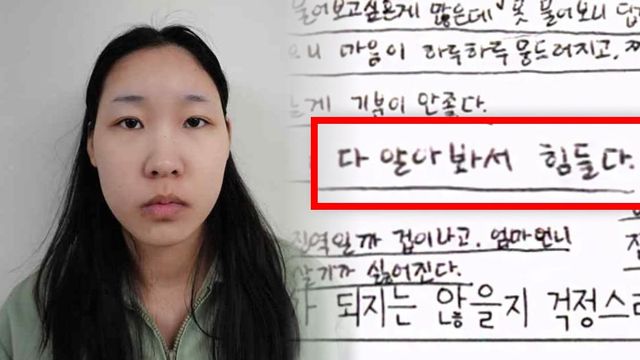 물어보고싶은게 많은데 못 물어보니 답
으니 마음이 하루하루 뭉드러지고,
는게 기분이 안좋다.
다 알아봐서 힘들다.
진역일까 겁이나고, 엄마언니
살기가 싫어진다.
가 되지는 않을지 걱정스러